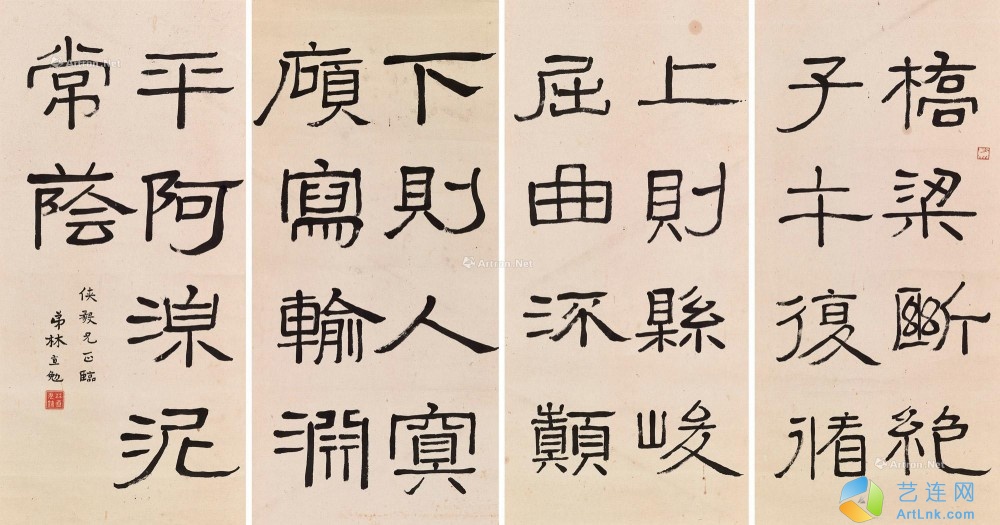 橋梁斷絕
子午復循
上則縣峻
屈曲流顛
下則入冥
廎寫輸淵
平阿湶泥
常蔭
俠毅兄正臨
弟林直勉
Artron.Net
Artron.Net
Artron.Net
艺连网
ArtLnk.com